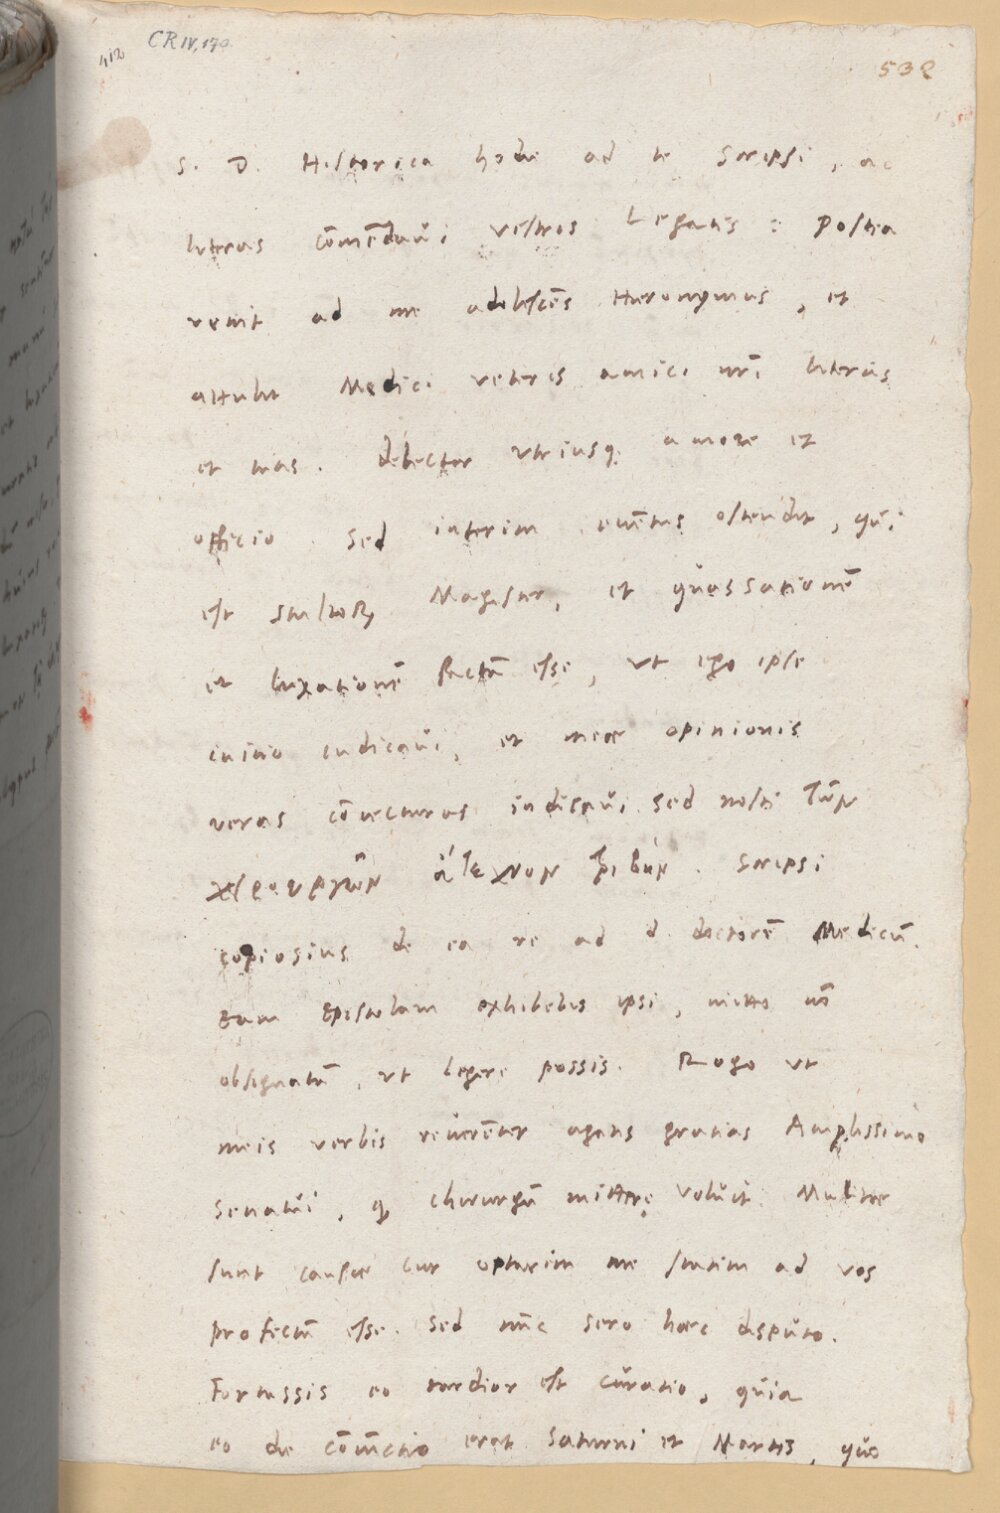 412 CR IV, 170.
532
S. D. Historica hodie ad te scripsi, ac
literas com̄ēdavi vestris Legatis : postea
venit ad me adolescēs Hieronymus, et
attulit Medici veteris amici nr̄i literas
et tuas. delector utriusq amore et
officio. Sed interim evētus ostendit, qui
est stultoꝝ Magister, et quassationē
et luxationē factā esse, ut ego ipse
initio iudicavi, et meae opinionis
veras cōiecturas indicavi. sed nosti τῶν
χειρουργῶν ἄτεχνον τριβήν. Scripsi
copiosius de ea re ad d. doctorē Medicū.
Eam Epistolam exhibebis ipsi, mitto nō
obsignatā, ut legere possis. Rogo ut
meis verbis reverēter agatis gratias Amplissimo
Senatui, qꝫ chirurgū mittere voluit. Multae
sunt causae cur optarim me statim ad vos
profectū esse. Sed nūc sero haec disputo.
Fortassis eo tardior est curatio, quia
eo die cōiūctio erat Saturni et Martis, quo